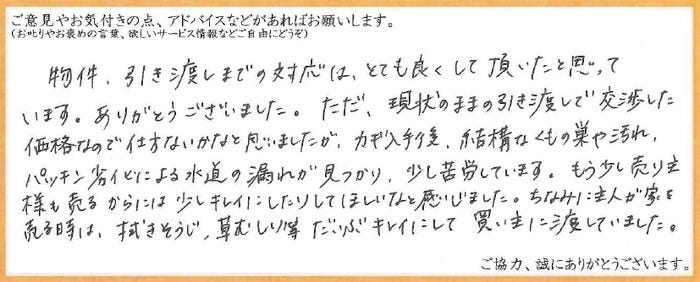 ご意見やお気付きの点、アドバイスなどがあればお願いします。
(お叱りやお褒めの言葉、欲しいサービス情報などご自由にどうぞ)
物件、引き渡しまでの対応は、とても良くして頂いたと思って
います。ありがとうございました。ただ、現状のままの引き渡しで交渉した
価格なので仕方ないかなと思いましたが、カギ入手後、結構なくもの巣や汚れ、
パッキン劣化による水道の漏れが見つかり、少し苦労しています。もう少し売り主
様も売るからには少しキレイにしたりしてほしいなと感じました。ちなみに主人が家を
売る時は、拭きそうじ、草むしり等だいぶキレイにして買い主に渡していました。
ご協力、誠にありがとうございます。